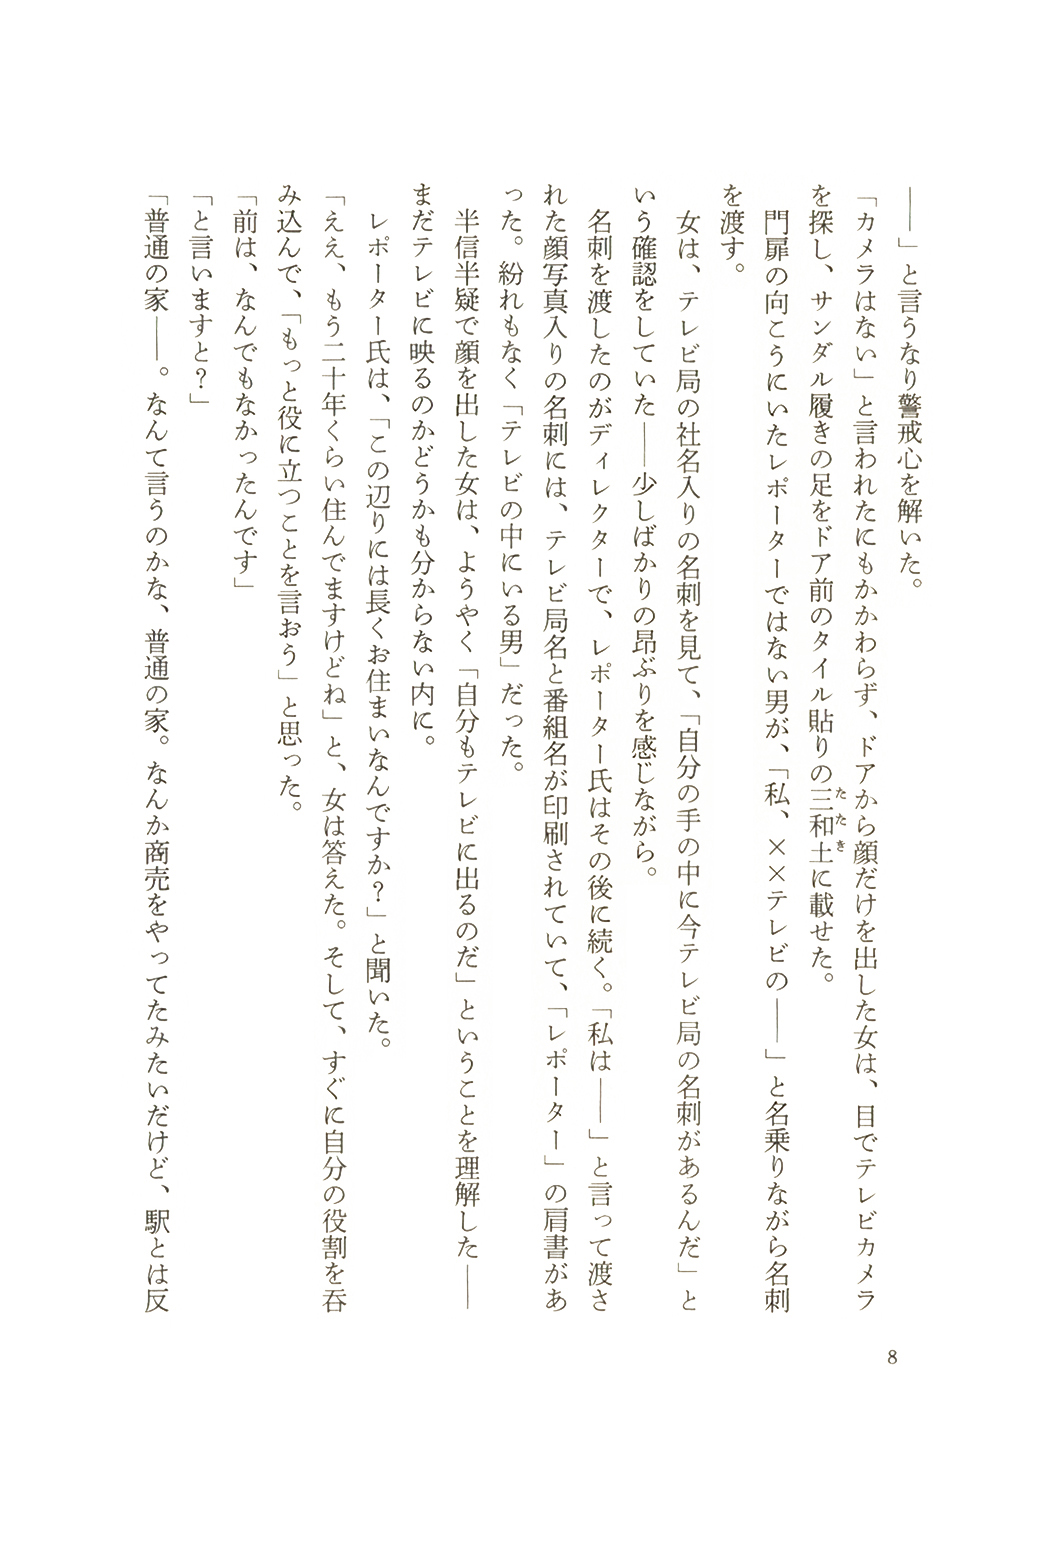 ――」と言うなり警戒心を解いた。
「カメラはない」と言われたにもかかわらず、ドアから顔だけを出した女は、目でテレビカメラ
を探し、サンダル履きの足をドア前のタイル貼りの三和土に載せた。
たたき
門扉の向こうにいたレポーターではない男が、「私、××テレビの――」と名乗りながら名刺
を渡す。
女は、テレビ局の社名入りの名刺を見て、「自分の手の中に今テレビ局の名刺があるんだ」と
いう確認をしていた――少しばかりの昂ぶりを感じながら。
名刺を渡したのがディレクターで、レポーター氏はその後に続く。「私は――」と言って渡さ
れた顔写真入りの名刺には、テレビ局名と番組名が印刷されていて、「レポーター」の肩書があ
った。紛れもなく「テレビの中にいる男」だった。
半信半疑で顔を出した女は、ようやく「自分もテレビに出るのだ」ということを理解した――
まだテレビに映るのかどうかも分からない内に。
レポーター氏は、「この辺りには長くお住まいなんですか？」と聞いた。
「ええ、もう二十年くらい住んでますけどね」と、女は答えた。そして、すぐに自分の役割を呑
み込んで、「もっと役に立つことを言おう」と思った。
「前は、なんでもなかったんです」
「と言いますと？」
「普通の家――。なんて言うのかな、普通の家。なんか商売をやってたみたいだけど、駅とは反
8